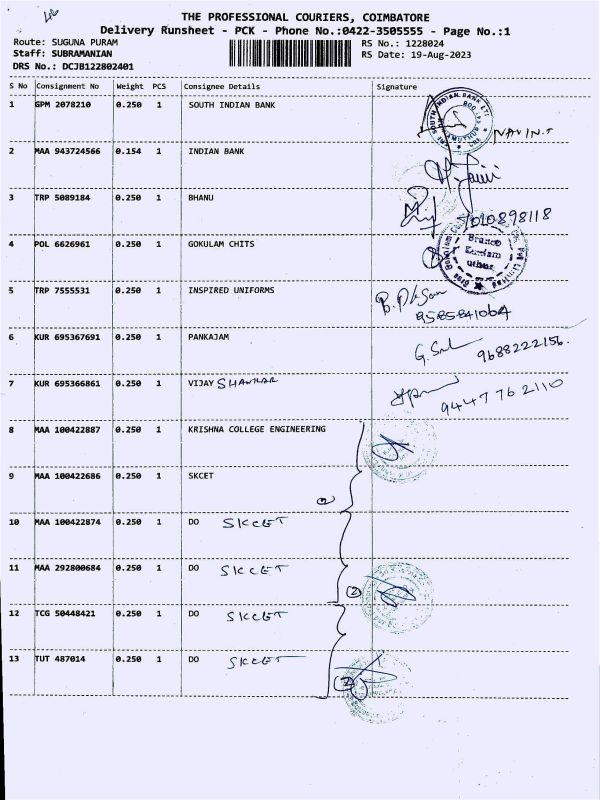 THE PROFESSIONAL COURIERS, COIMBATORE
Delivery Runsheet - PCK - Phone No.:0422-3505555 - Page No.:1
Route: SUGUNA PURAM RS No.: 1228024
Staff: SUBRAMANIAN RS Date: 19-Aug-2023
DRS No.: DCJB122802401
S No Consignment No Weight PCS Consignee Details Signature
1 GPM 2078210 0.250 1 SOUTH INDIAN BANK
NAVIN.T
2 MAA 943724566 0.154 1 INDIAN BANK
3 TRP 5089184 0.250 1 BHANU
7010898118
4 POL 6626961 0.250 1 GOKULAM CHITS
Branch
5 TRP 7555531 0.250 1 INSPIRED UNIFORMS
9585841064
6 KUR 695367691 0.250 1 PANKAJAM
9688222156.
7 KUR 695366861 0.250 1 VIJAY SHANKAR
9447762110
8 MAA 100422887 0.250 1 KRISHNA COLLEGE ENGINEERING
9 MAA 100422686 0.250 1 SKCET
10 MAA 100422874 0.250 1 DO SKCET
11 MAA 292800684 0.250 1 DO SKCET
(2)
12 TCG 50448421 0.250 1 DO SKCET
13 TUT 487014 0.250 1 DO SKCET